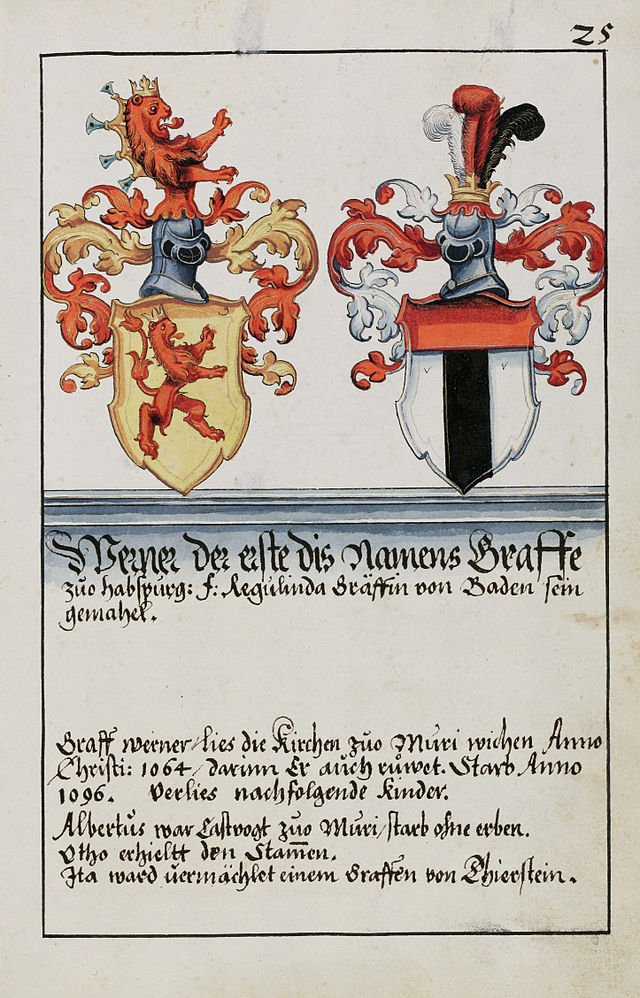 25
Werner der erste dis Namens Graffe
zuo Habspurg: f: Regulinda Gräffin von Baden sein
gemahel.
Graff werner/lies die Kirchen zuo Muri wichen Anno
Christi: 1064/darinn Er auch růwet. Starb Anno
1096. Verlies nachfolgende Kinder.
Albertus war Castvogt zuo Muri/starb ohne erben.
Otho erhieltt den Stam̅en.
Ita ward vermächlet einem Graffen von Thierstein.